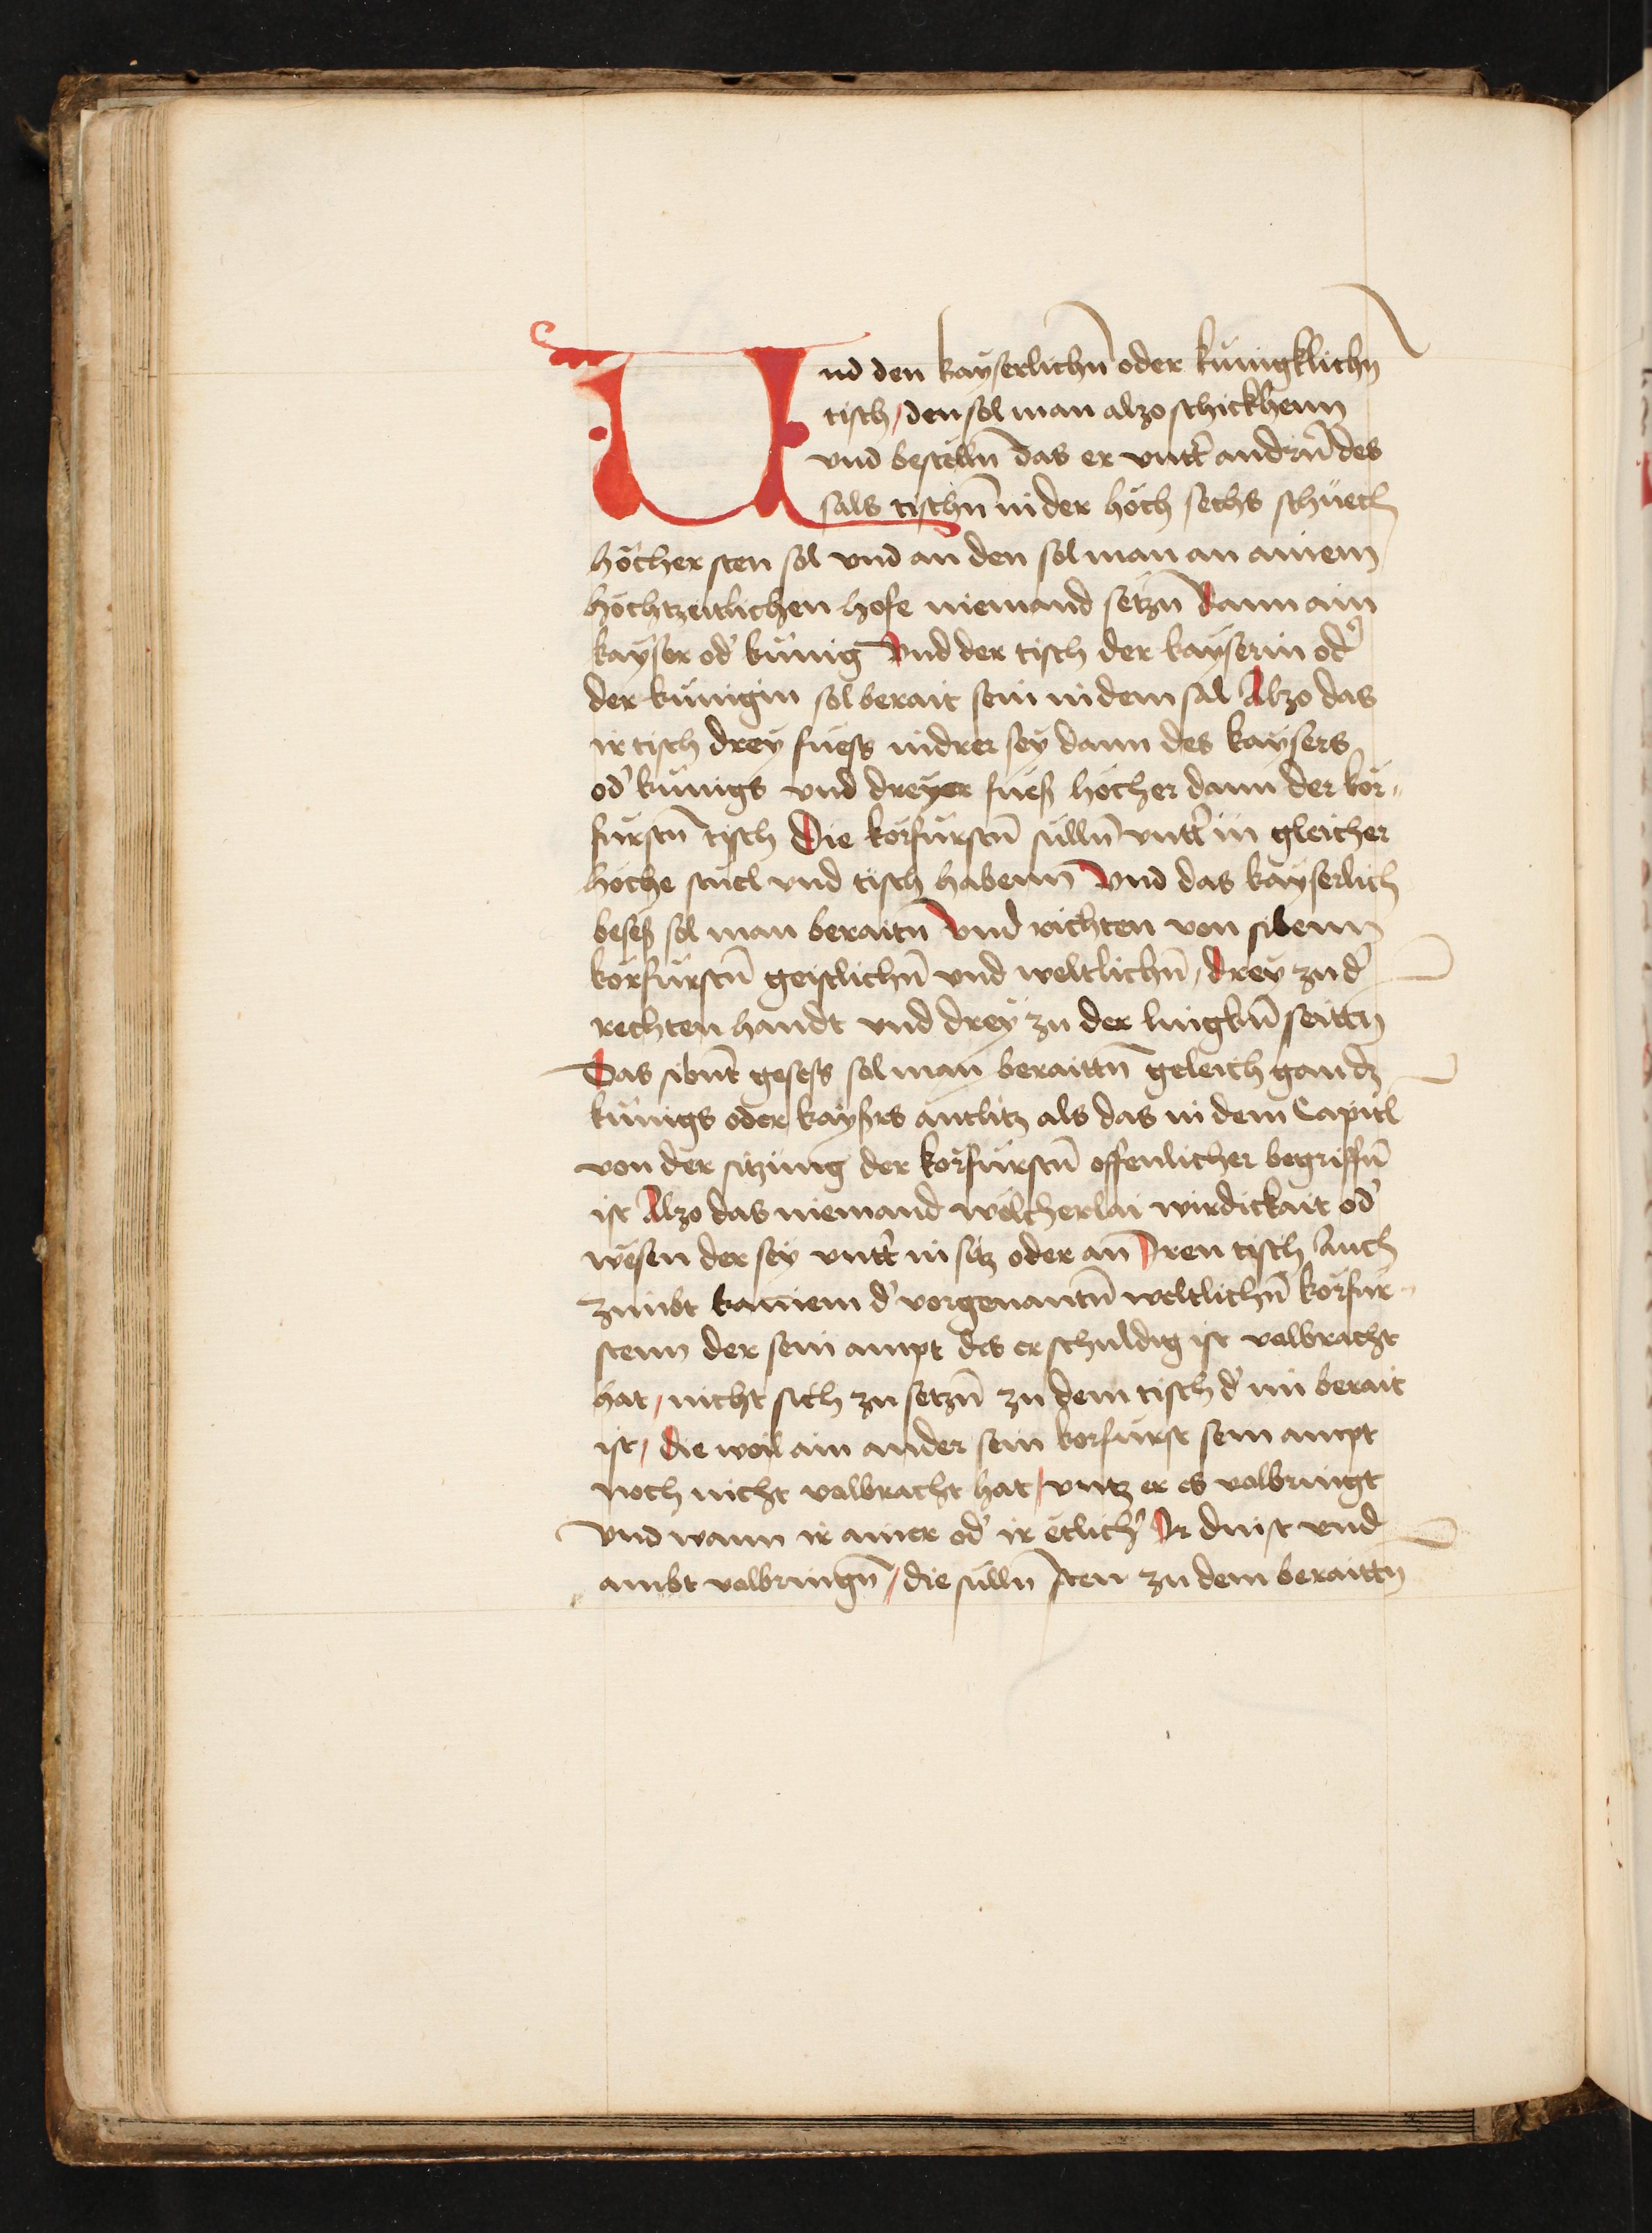 Und den kayserlichn̄ oder kŭnigklichn̄
tisch / den sol man alzo schickhenn
vnd bestelln̄ das er vntt̓ andrn̄ des
sals tischn̄ in der höch sechs schuech
höcher sten sol vnd an den sol man an ainem
hochtzeitlichen hofe niemand setzn̄ dann ain
kayser od̓ kŭnig Vnd der tisch der kayserin od̓
der kŭnigin sol berait sein in dem sal Alzo das
ir tisch drey fuess nidrer sey dann des kaysers
od̓ kŭnigs vnd dreyer fueß höcher dann der kor„
fŭrstn̄ tisch Die korfŭrstn̄ sŭlln̄ vntt̓ in gleicher
höche stuel vnd tisch habenn Vnd das kayserlich
beseß sol man beraitn̄ Vnd richten von sibenn
korfŭrstn̄ geistlichn̄ vnd weltlichn̄ / drey zu d̓
rechten handt vnd drey zu der lingkn̄ seittn̄
Das sibn̄t gesess sol man beraittn̄ geleich gandz
kŭnigs oder kayßrs antlitz als das in dem Capitl
von der sitzung der korfŭrstn̄ offenlicher begriffn̄
ist Alzo das niemand welcherlai wirdickait od̓
wesen der sey vntt̓ in sitz oder an Iren tisch Auch
zimbt kainem d̓ vorgenantn̄ weltlichn̄ korfŭr„
stenn der sein ampt des er schuldig ist volbracht
hat / nicht sich zu setzn̄ zu dem tisch d̓ im berait
ist / die weil ain ander sein korfŭrst sein ampt
noch nicht volbracht hat / vntz er es volbringt
Vnd wann ir ainer od̓ ir etlich̓ Ir dinst vnd
ambt volbringn̄ / die sŭlln̄ sten zu dem beraittn̄